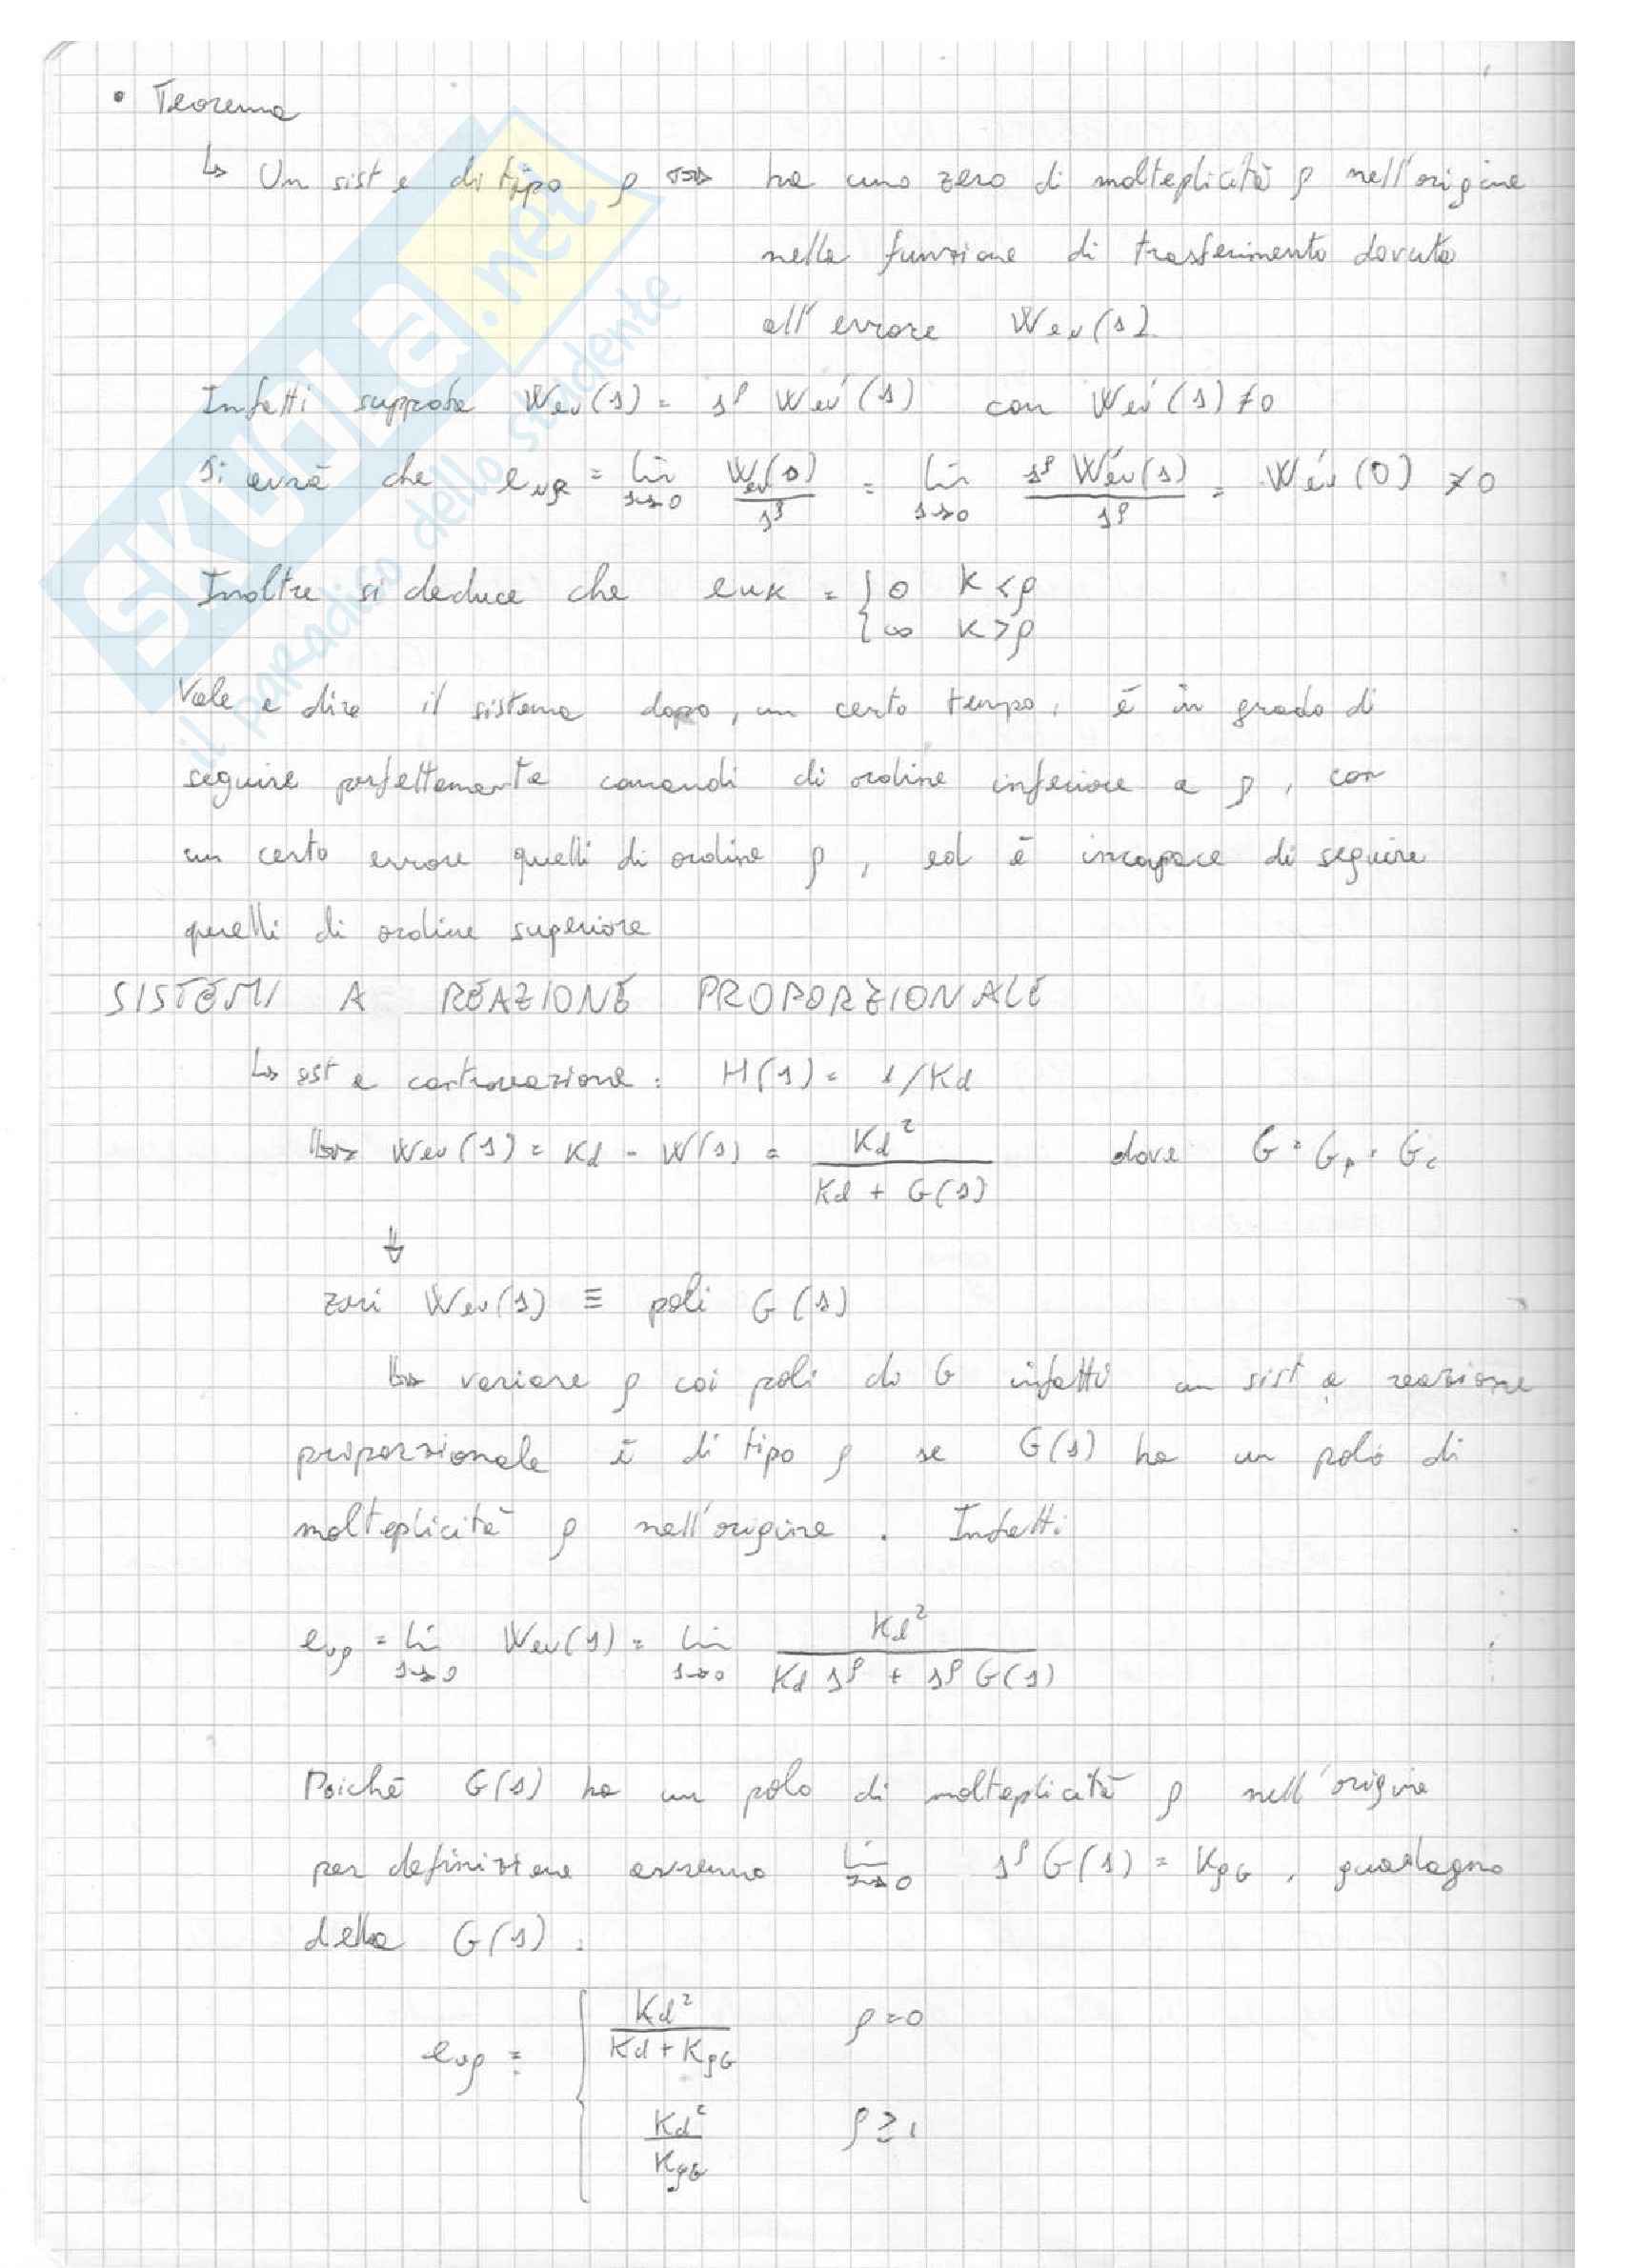 • Teorema
↳ Un sist è di tipo ρ ⟺ ha uno zero di molteplicità ρ nell'origine
nella funzione di trasferimento dovuta
all'errore Weu(s).
Infatti supposta Weu(s) = s^ρ Weu'(s) con Weu'(s) ≠ 0
Si avrà che euρ = lim s→0 Weu(s)/s^ρ = lim s→0 s^ρ Weu'(s)/s^ρ = Weu'(0) ≠ 0
Inoltre si deduce che euk = { 0 K < ρ
{ ∞ K > ρ
Vale a dire il sistema dopo, un certo tempo, è in grado di
seguire perfettamente comandi di ordine inferiore a ρ, con
un certo errore quelli di ordine ρ, ed è incapace di seguire
quelli di ordine superiore
SISTEMI A REAZIONE PROPORZIONALE
↳ sist a controreazione: H(s) = 1/Kd
↳ Weu(s) = Kd - W(s) = Kd²/(Kd + G(s)) dove G = Gp · Gc
⇓
zeri Weu(s) ≡ poli G(s)
↳ variare ρ coi poli di G infatti un sist a reazione
proporzionale è di tipo ρ se G(s) ha un polo di
molteplicità ρ nell'origine. Infatti
euρ = lim s→0 Weu(s) = lim s→0 Kd²/(Kd s^ρ + s^ρ G(s))
Poiché G(s) ha un polo di molteplicità ρ nell'origine
per definizione avremo lim s→0 s^ρ G(s) = KρG, guadagno
della G(s):
euρ = { Kd²/(Kd + KρG) ρ = 0
{ Kd²/KρG ρ ≥ 1
SKUOLA.net
il paradiso dello studente